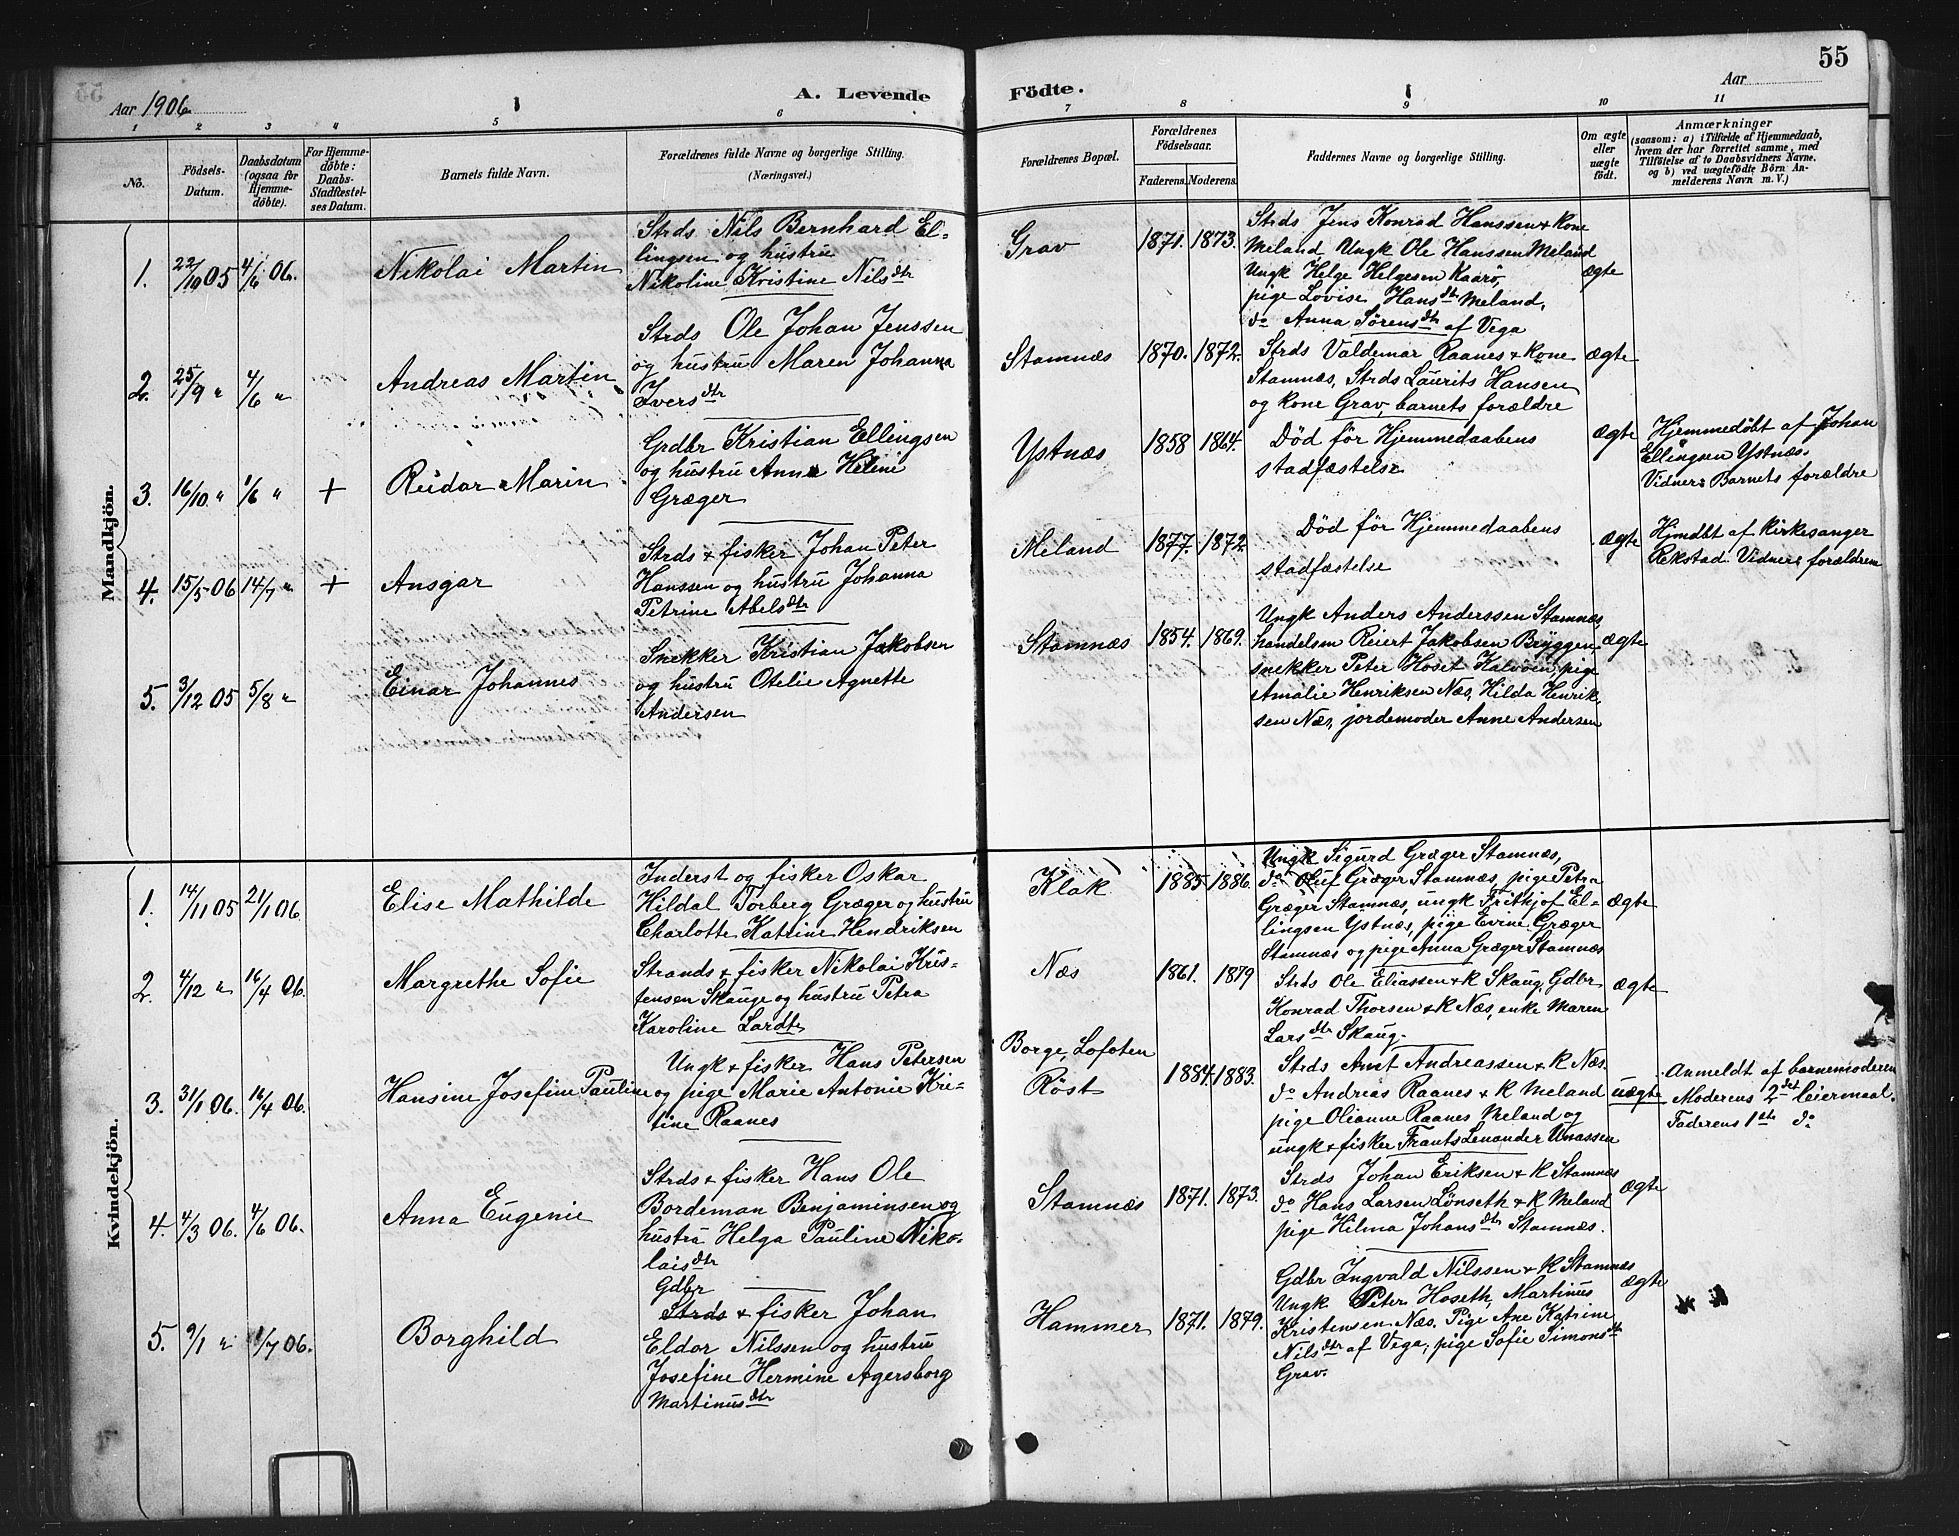 55
Aar 1906
A. Levende Födte.
Aar
1 2 3 4 5 6 7 8 9 10 11
No.
Födsels-
Datum.
Daabsdatum
(ogsaa for
Hjemme-
döbte).
For Hjemme-
döbte:
Daabs-
Stadfæstel-
ses Datum.
Barnets fulde Navn.
Forældrenes fulde Navne og borgerlige Stilling.
(Næringsvei.)
Forældrenes Bopæl.
Forældrenes
Födselsaar.
Faderens. Moderens.
Faddernes Navne og borgerlige Stilling.
Om ægte
eller
uægte
födt.
Anmærkninger
(saasom: a) i Tilfælde af Hjemmedaab,
hvem der har forrettet samme, med
Tilföielse af to Daabsvidners Navne.
og b) ved uægtefödte Börn An-
melderens Navn m. V.)
Mandkjön.
1. 22/10 05 4/6 06. Nikolai Martin
Strds Nils Bernhard El-
lingsen og hustru
Nikoline Kristine Nilsdtr
Grav 1871. 1873.
Strds Jens Konrad Hanssen & Kone
Meland, Ungk Ole Hanssen Meland
Ungk Helge Helgesen Kaarø,
pige Lovise Hansdtr Meland,
do Anna Sørensdtr af Vega
ægte
2. 25/9 " 4/6 " Andreas Martin
Strds Ole Johan Jenssen
og hustru Maren Johanna
Iversdtr
Stamnæs 1870. 1872.
Strds Valdemar Raanes & Kone
Stamnæs, Strds Laurits Hansen
og kone Grav, barnets forældre
ægte
3. 16/10 " 1/6 " + Reidar Marin
Grdbr Kristian Ellingsen
og hustru Anna Heline
Græger
Ystnæs 1858 1864.
Død før Hjemmedaabens
stadfæstelse
ægte
Hjemmedøbt af Johan
Ellingsen Ystnæs.
Vidner: Barnets forældre
4. 15/5 06 14/7 " + Ansgar
Strds & fisker Johan Peter
Hanssen og hustru Johanna
Petrine Abelsdtr
Meland 1877. 1872
Død før Hjemmedaabens
stadfæstelse
ægte
Hjmdbt af Kirkesanger
Rekstad. Vidner: forældrene
5. 3/12 05 5/8 " Einar Johannes
Snekker Kristian Jakobsen
og hustru Otelie Agnette
Andersen
Stamnæs 1854. 1869.
Ungk Anders Anderssen Stamnæs,
handelsm Reiert Jakobsen Bryggen
snekker Peter Hoset Kalvøen, pige
Amalie Henriksen Næs, Hilda Henrik-
sen Næs, jordemoder Anne Andersen
ægte
Kvindekjön.
1. 14/11 05 21/1 06. Elise Mathilde
Inderst og fisker Oskar
Hildal Torberg Græger og hustru
Charlotte Katrine Hendriksen
Klak 1885 1886.
Ungk Sigurd Græger Stamnæs,
do Oluf Græger Stamnæs, pige Petra
Græger Stamnæs, ungk Frithjof El-
lingsen Ystnæs, pige Evine Græger
Stamnæs og pige Anna Græger Stamnæs
ægte
2. 4/12 " 16/4 06. Margrethe Sofie
Strands & fisker Nikolai Kris-
tensen Skauge og hustru Petra
Karoline Larsdtr
Næs 1861. 1879
Strds Ole Eliassen & K Skaug, Gdbr
Konrad Thorsen & K Næs, enke Maren
Larsdtr Skaug.
ægte
3. 31/1 06. 16/4 06. Hansine Josefine Pauline
Ungk & fisker Hans Petersen
og pige Marie Antonie Kris-
tine Raanes
Borge, Lofoten
Røst 1884. 1883.
Strds Amt Andreassen & K Næs.
do Andreas Raanes & K Meland
pige Olianne Raanes Meland og
ungk & fisker Frants Lenander Unassen
uægte
Anmeldt af barnemoderen
Moderens 2det leiermaal.
Faderens 1ste do
4. 4/3 06. 4/6 06. Anna Eugenie
Strds & fisker Hans Ole
Bordeman Benjaminsen og
hustru Helga Pauline Niko-
laisdtr
Stamnæs 1871. 1873.
Strds Johan Eriksen & K Stamnæs
do Hans Larsen Lønseth & K Meland
pige Hilma Johansdtr Stamnæs.
ægte
5. 9/1 " 1/7 06. Borghild
Gdbr
Strds & fisker Johan
Eldor Nilssen og hustru
Josefine Hermine Agersborg
Martinusdtr
Hammer 1871. 1879.
Gdbr Ingvald Nilssen & K Stamnæs
Ungk Peter Hoseth, Martinus
Kristensen Næs. Pige Ane Katrine
Nilsdtr af Vega, pige Sofie Simonsdtr
Grav.
ægte